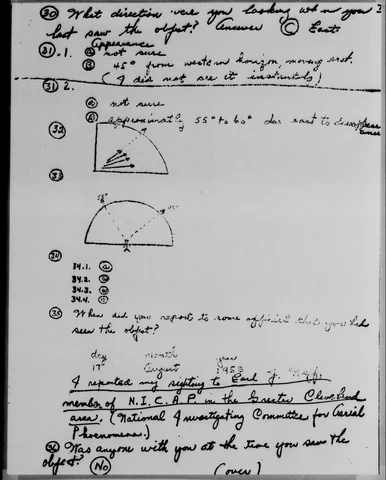 30 What direction were you looking when you 2
last saw the object? Answer C East
Appearance
31. 1. a not sure
B 45° from western horizon, moving east.
(I did not see it instantly)
31 2.
a not sure
b approximately 55° to 60° due east to disappearance
32
33
55°
45°
34
34.1. a
34.2.
34.3.
34.4.
35 When did you report to some official that you had
seen the object?
day month year
17 August 1958
I reported my sighting to Earl J. Neff,
member of N.I.C.A.P. in the Greater Cleveland
area. (National Investigating Committee for Aerial
Phenomena.)
36 Was anyone with you at the time you saw the
object? No
(over)